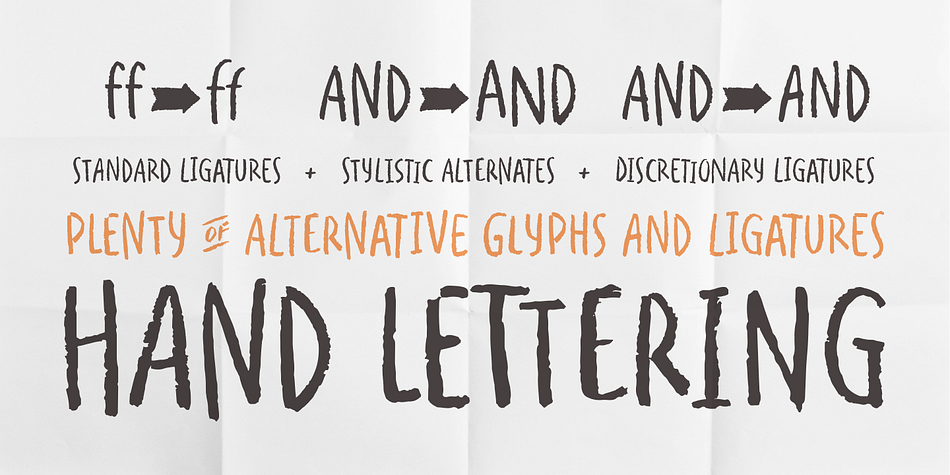 ff ➡ ff AND ➡ AND AND ➡ AND
STANDARD LIGATURES + STYLISTIC ALTERNATES + DISCRETIONARY LIGATURES
PLENTY OF ALTERNATIVE GLYPHS AND LIGATURES
HAND LETTERING